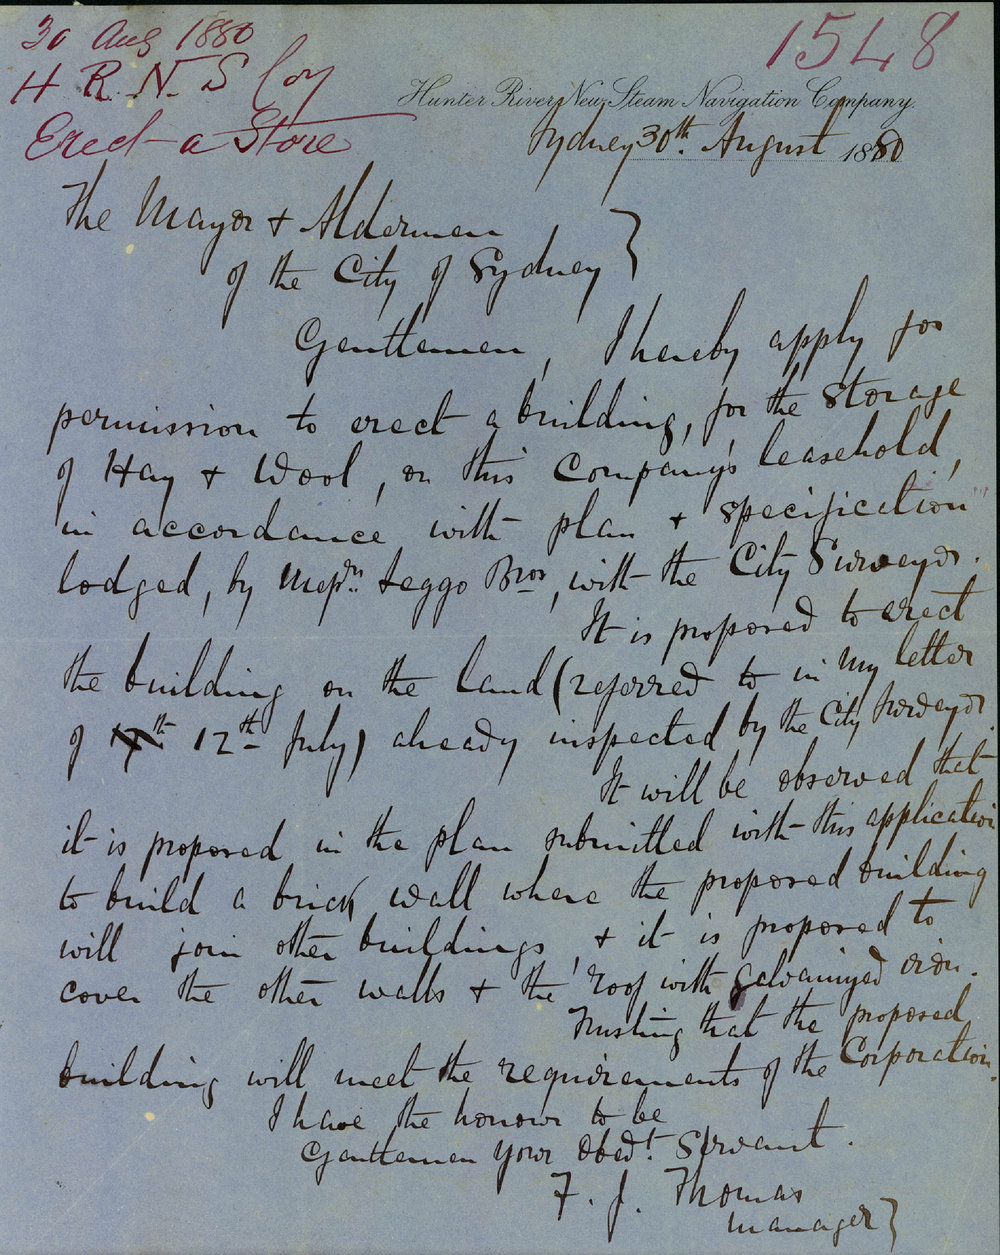 30 Aug 1880
1548
H. R. N. S Coy
Erect a Store
Hunter River New Steam Navigation Company.
Sydney 30th. August 1880
The Mayor & Aldermen
of the City of Sydney }
Gentlemen, I hereby apply for
permission to erect a building, for the storage
of Hay & Wool, on this Company's leasehold,
in accordance with plan & specification
lodged, by Messrs. Leggo Bros, with the City Surveyor.
It is proposed to erect
the building on the land (referred to in my letter
of 12th July) already inspected by the City Surveyor.
It will be observed that
it is proposed in the plan submitted with this application
to build a brick wall where the proposed building
will join other buildings, & it is proposed to
cover the other walls & the roof with galvanized iron.
Trusting that the proposed
building will meet the requirements of the Corporation.
I have the honour to be
Gentlemen your obedt. Servant.
F. J. Thomas
Manager }